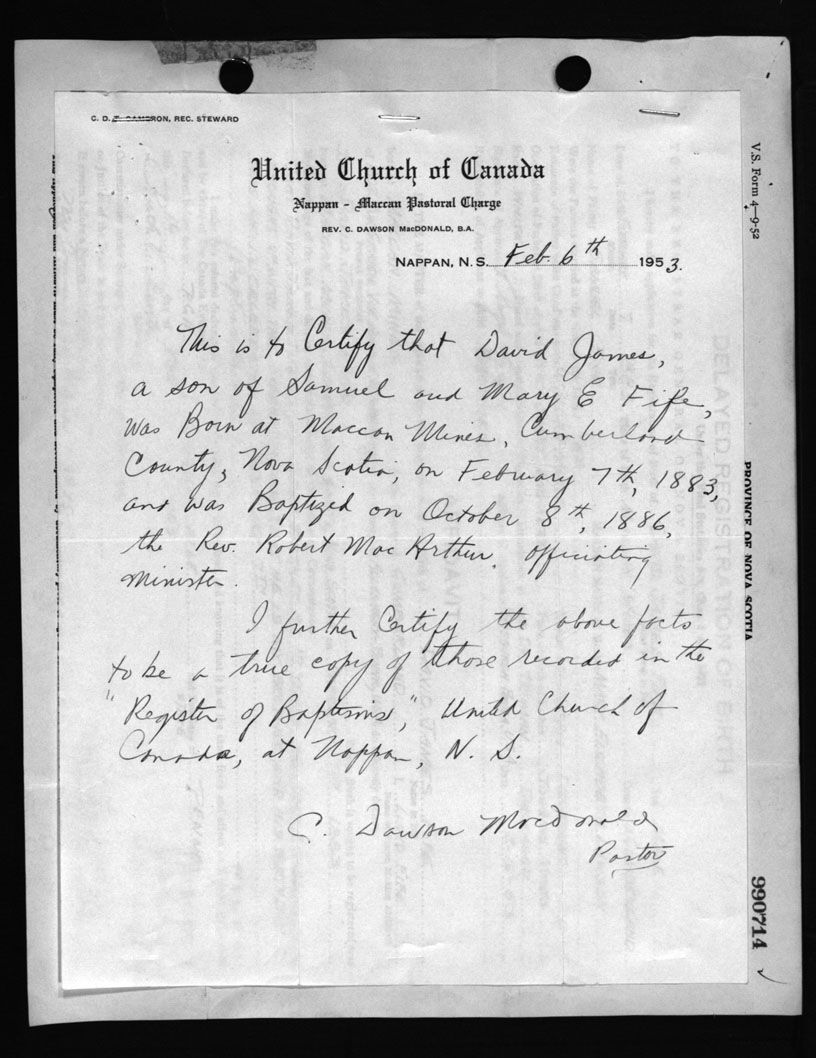 C. D. CAMERON, REC. STEWARD
United Church of Canada
Nappan - Maccan Pastoral Charge
REV. C. DAWSON MacDONALD, B.A.
NAPPAN, N. S. Feb. 6th 1953.
This is to Certify that David James,
a son of Samuel and Mary E Fife,
was Born at Maccan Mines, Cumberland
County, Nova Scotia, on February 7th, 1883,
and was Baptized on October 8th, 1886,
the Rev. Robert MacArthur, officiating
minister.
I further Certify the above facts
to be a true copy of those recorded in the
"Register of Baptisms," United Church of
Canada, at Nappan, N. S.
C. Dawson Macdonald
Pastor
V.S. Form 4—9-52
PROVINCE OF NOVA SCOTIA
DELAYED REGISTRATION OF BIRTH
990714